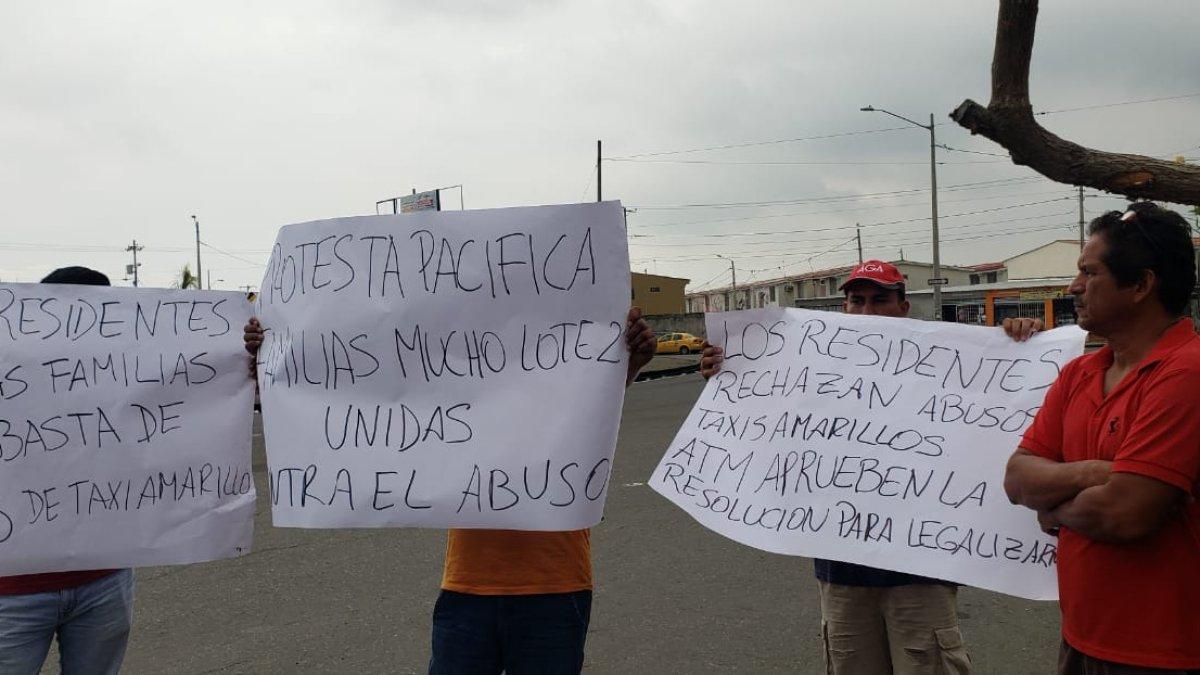 RESIDENTES
FAMILIAS
BASTA DE
DE TAXI AMARILLO
PROTESTA PACIFICA
FAMILIAS MUCHO LOTE 2
UNIDAS
CONTRA EL ABUSO
AGA
LOS RESIDENTES
RECHAZAN ABUSOS
TAXIS AMARILLOS.
ATM APRUEBEN LA
RESOLUCION PARA LEGALIZAR